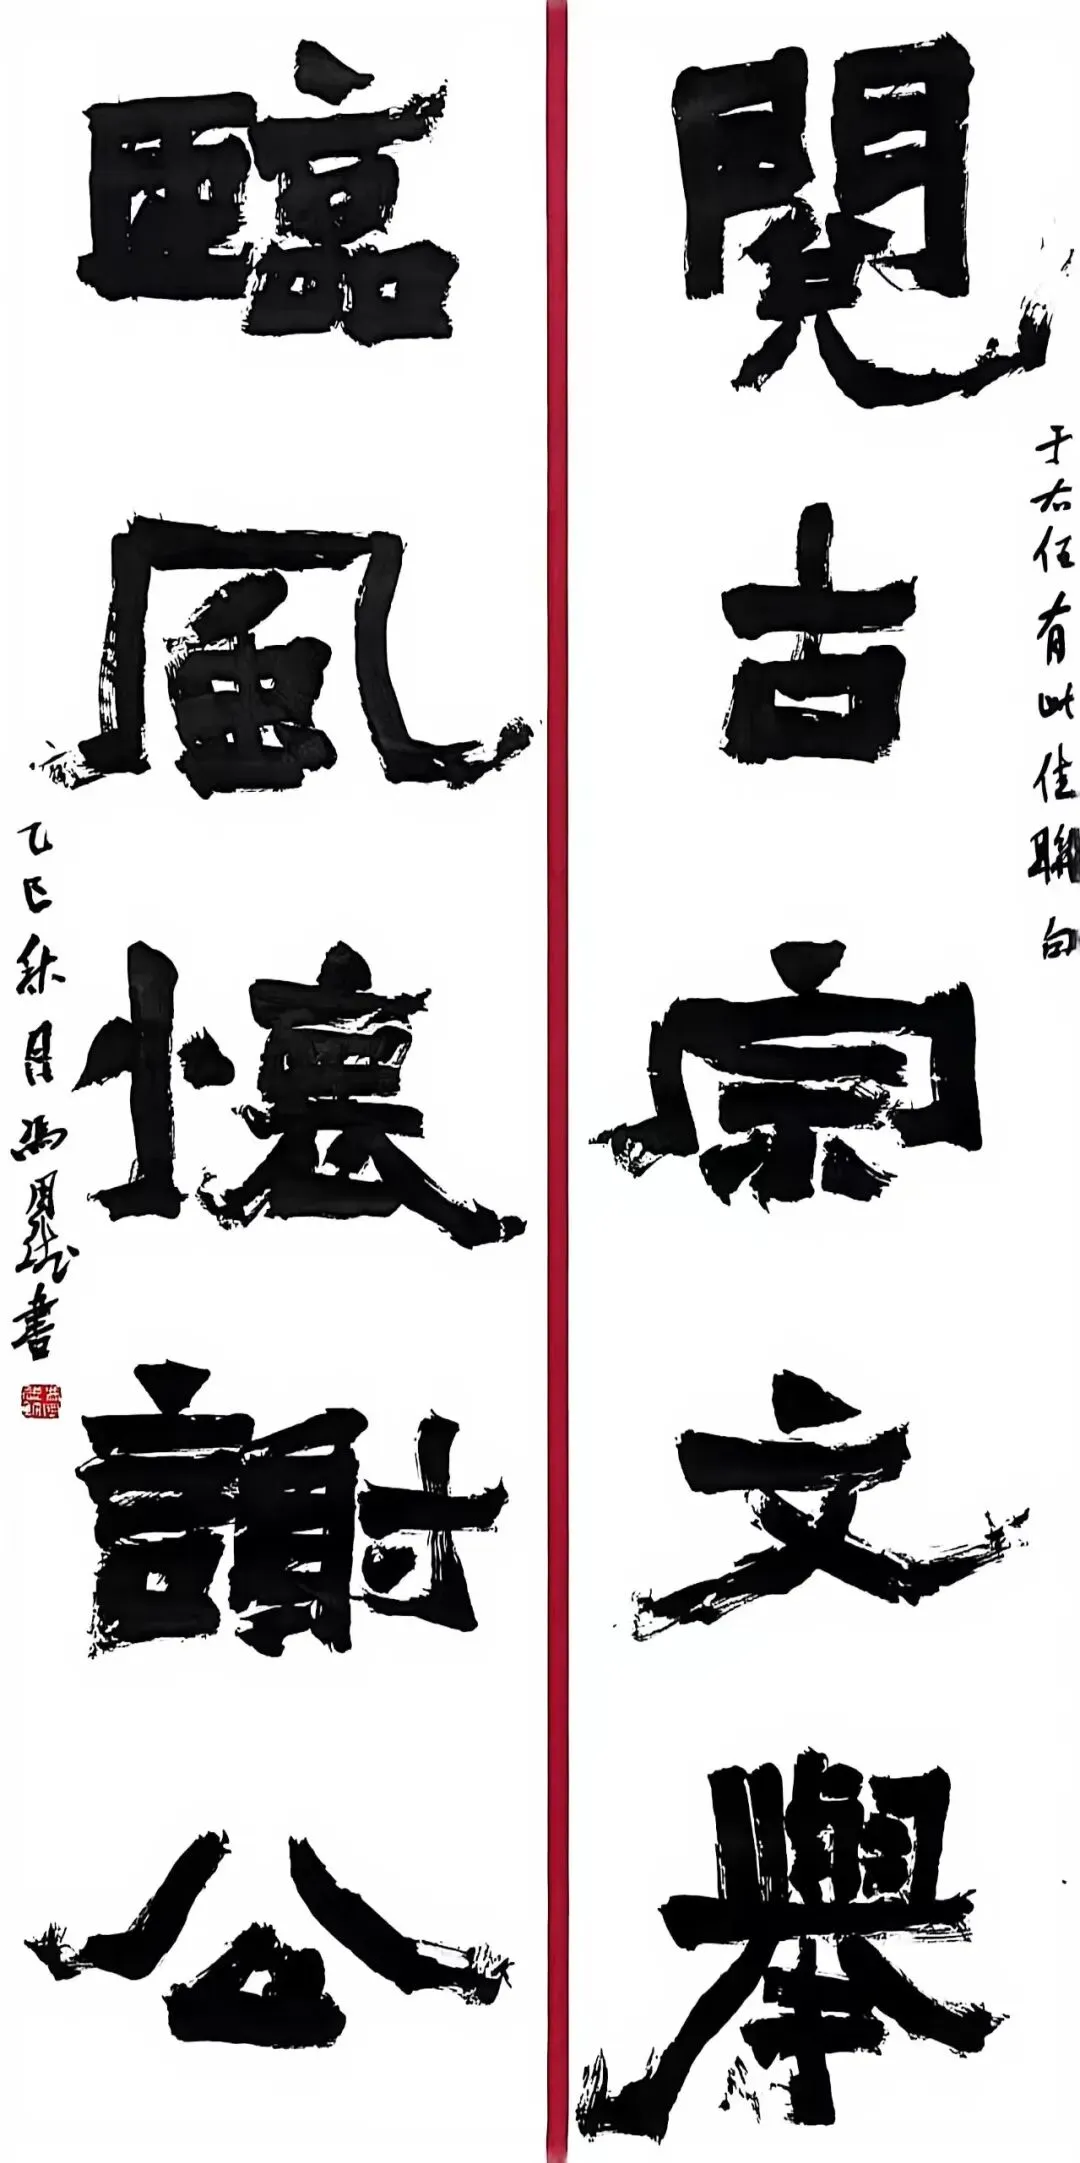 閱古宗文舉
于右任有此佳聯句
臨風懷謝公
乙巳秋月馮周書